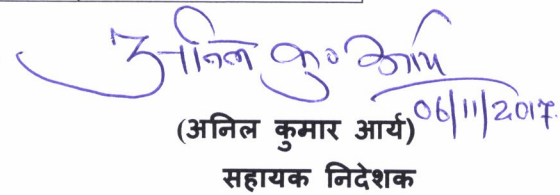 अनिल कु० आर्य
06/11/2017.
(अनिल कुमार आर्य)
सहायक निदेशक